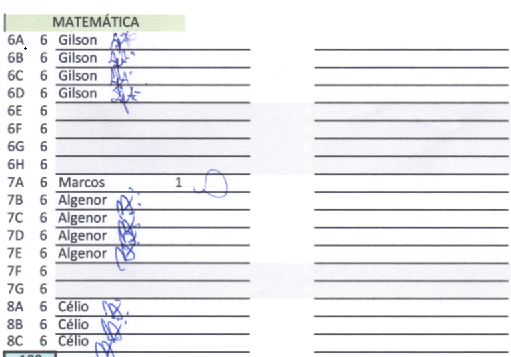 MATEMÁTICA
6A 6 Gilson
6B 6 Gilson
6C 6 Gilson
6D 6 Gilson
6E 6
6F 6
6G 6
6H 6
7A 6 Marcos 1
7B 6 Algenor
7C 6 Algenor
7D 6 Algenor
7E 6 Algenor
7F 6
7G 6
8A 6 Célio
8B 6 Célio
8C 6 Célio